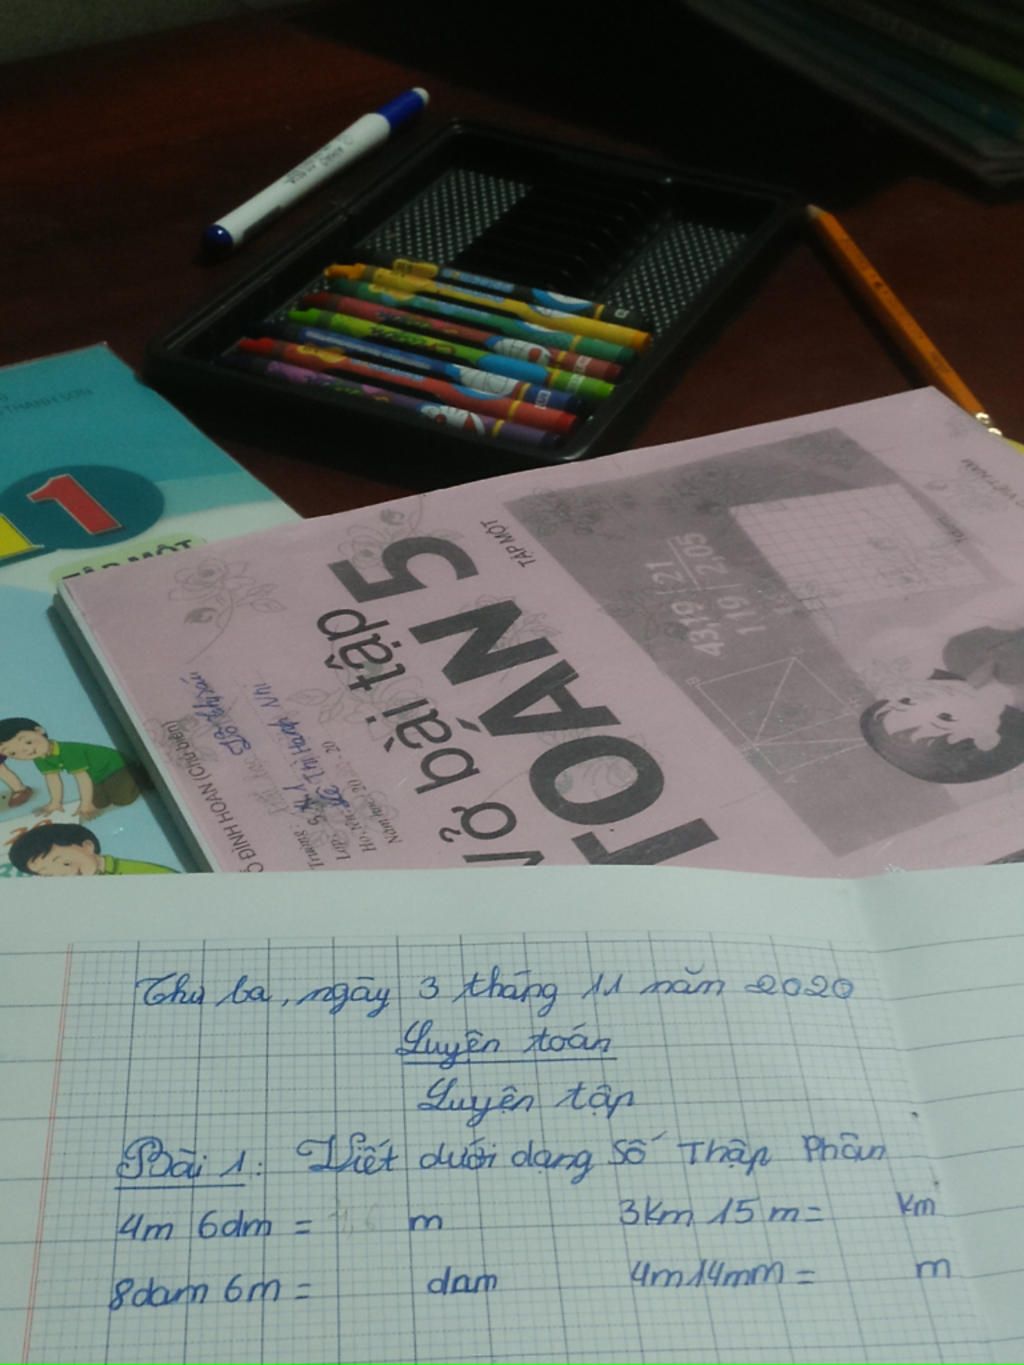 THANH SƠN
1
TẬP MỘT
TẬP MỘT
Vở bài tập
TOÁN 5
4319 21
119 2,05
VIỆT NAM
ĐÌNH HOAN (Chủ biên)
Trường:
Lớp: 5
Họ, tên: Thị Hạnh Nhi
Năm học: 20 - 20
Thứ ba, ngày 3 tháng 11 năm 2020
Luyện toán
Luyện tập
Bài 1: Viết dưới dạng Số Thập Phân
4m 6dm = m 3km 15m = km
8dam 6m = dam 4m14mm = m